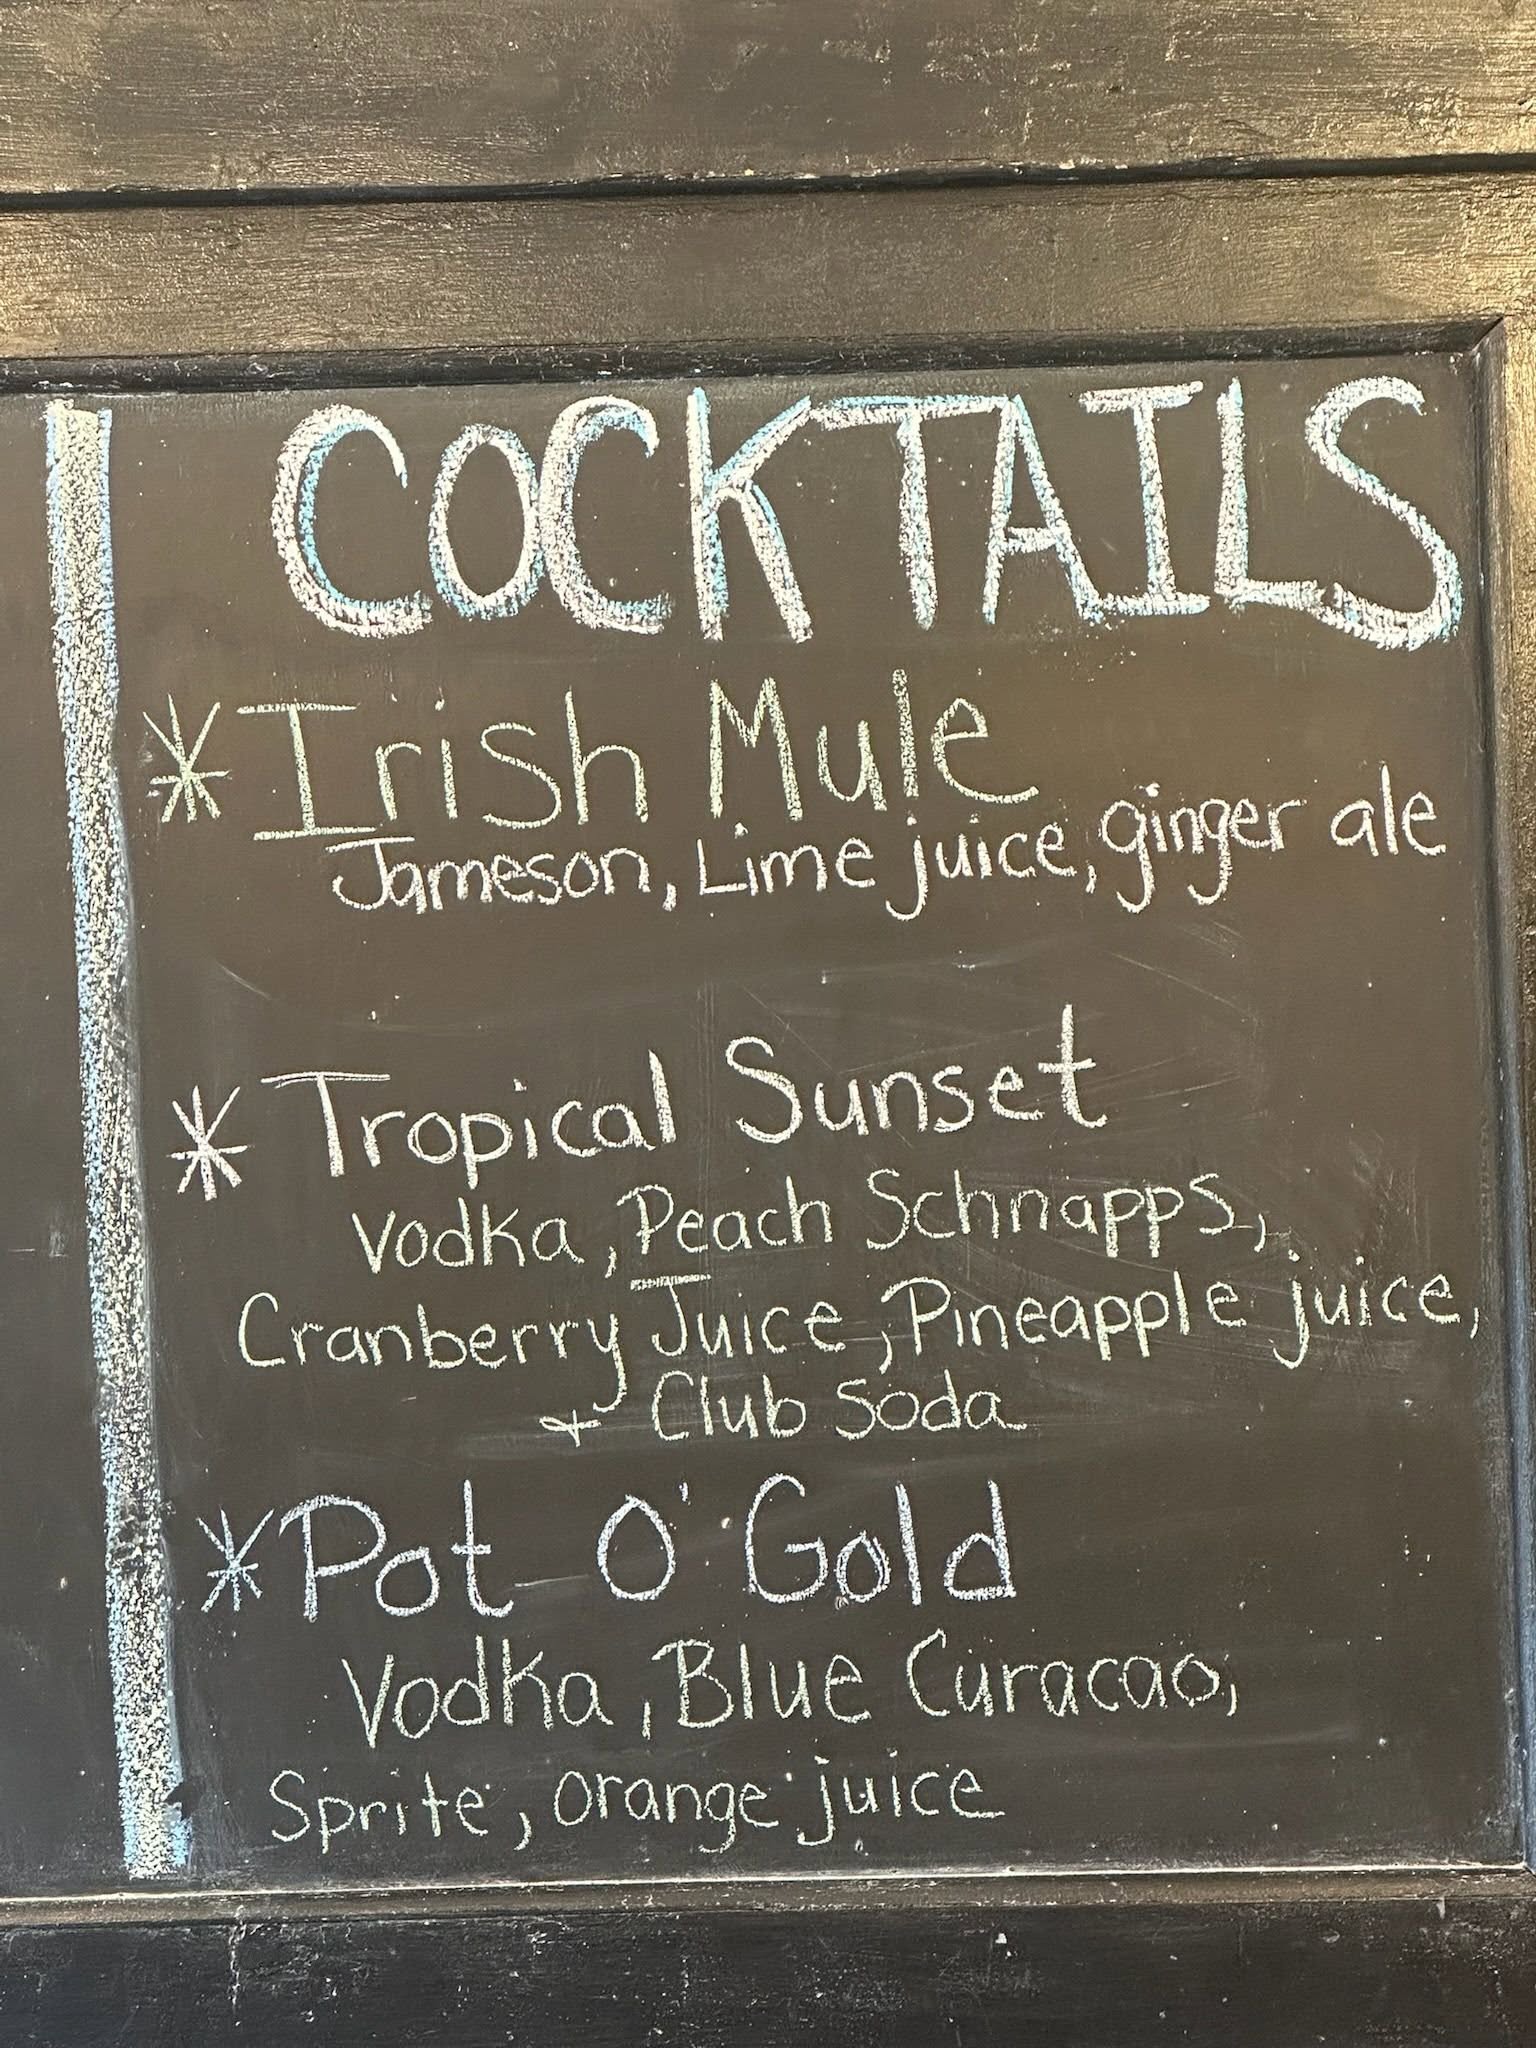 COCKTAILS
* Irish Mule
Jameson, Lime juice, ginger ale
* Tropical Sunset
Vodka, Peach Schnapps,
Cranberry Juice, Pineapple juice,
+ Club Soda
* Pot O' Gold
Vodka, Blue Curacao,
Sprite, orange juice